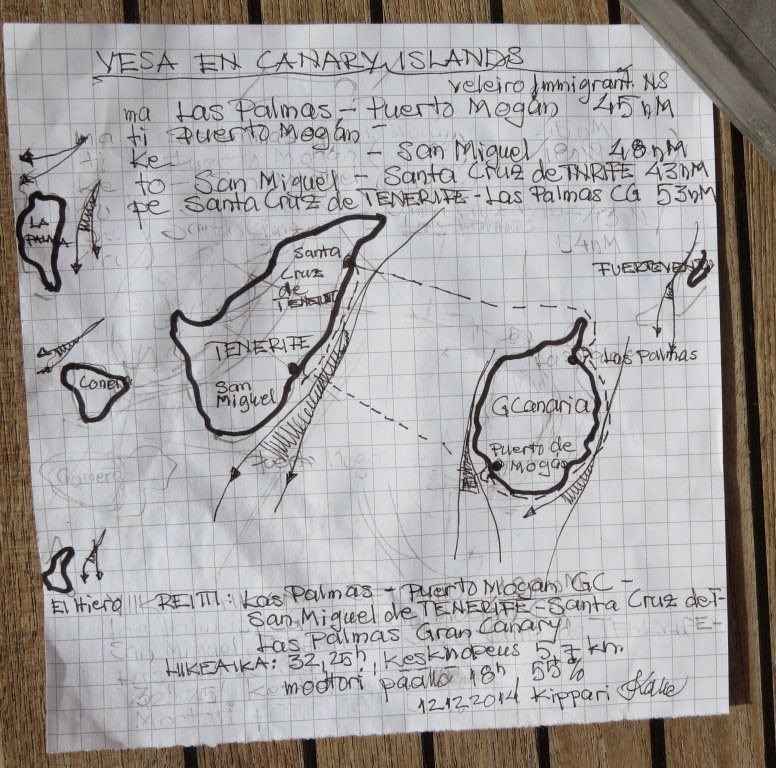 VESA EN CANARY ISLANDS
Veleiro Immigrant NS
ma Las Palmas - Puerto Mogán 45nM
ti Puerto Mogán -
ke - San Miguel 48nM
to San Miguel - Santa Cruz de TNRIFE 43nM
pe Santa Cruz de TENERIFE - Las Palmas CG 53nM
54nM
LA
PALMA
Santa
Cruz
de
FUERTEVENT
TENERIFE
San
Miguel
Las Palmas
GCanaria
Puerto de
Mogán
Gomera
El Hiero
REITTI: Las Palmas - Puerto Mogan GC -
San Miguel de TENERIFE - Santa Cruz de T-
Las Palmas Gran Canary
HIKEAIKA: 32,25h, Keskinopeus 5,7 km
moottori päällä 18h 55%
12.12.2014 Kippari Kalle